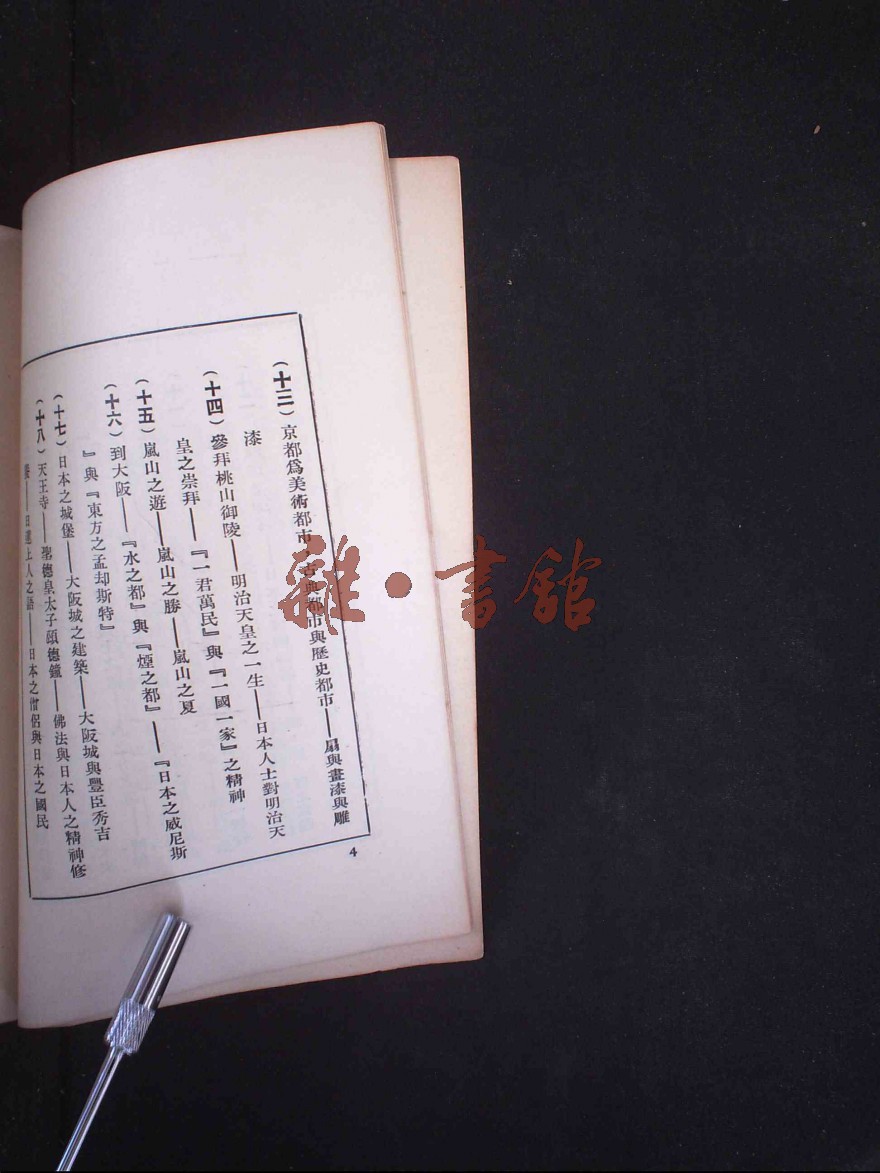 (十三)京都爲美術都市、古典都市與歷史都市——扇與畫漆與雕
漆
(十四)參拜桃山御陵——明治天皇之一生——日本人士對明治天
皇之崇拜——『一君萬民』與『一國一家』之精神
(十五)嵐山之遊——嵐山之勝——嵐山之夏
(十六)到大阪——『水之都』與『煙之都』——『日本之威尼斯
』與『東方之孟却斯特』
(十七)日本之城堡——大阪城之建築——大阪城與豐臣秀吉
(十八)天王寺——聖德皇太子頌德鐘——佛法與日本人之精神修
養——日建上人之語——日本之僧侶與日本之國民
4
雜·書館